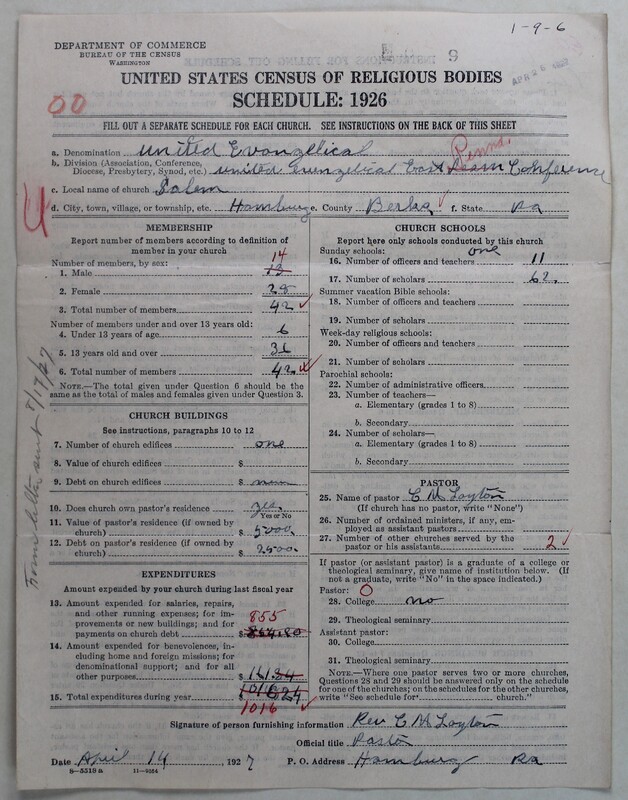 1-9-6
DEPARTMENT OF COMMERCE
BUREAU OF THE CENSUS
WASHINGTON
9
APR 26
UNITED STATES CENSUS OF RELIGIOUS BODIES
SCHEDULE: 1926
00
FILL OUT A SEPARATE SCHEDULE FOR EACH CHURCH. SEE INSTRUCTIONS ON THE BACK OF THIS SHEET
a. Denomination United Evangelical
Penna.
b. Division (Association, Conference,
Diocese, Presbytery, Synod, etc.) United Evangelical East Conference
c. Local name of church Salem
d. City, town, village, or township, etc. Hamburg e. County Berks f. State Pa
MEMBERSHIP
Report number of members according to definition of
member in your church
Number of members, by sex: 14
1. Male 13
2. Female 28
3. Total number of members 42
Number of members under and over 13 years old:
4. Under 13 years of age 6
5. 13 years old and over 36
6. Total number of members 42
NOTE.—The total given under Question 6 should be
same as the total of males and females given under Question 3.
CHURCH BUILDINGS
See instructions, paragraphs 10 to 12
7. Number of church edifices one
8. Value of church edifices $
9. Debt on church edifices $
10. Does church own pastor's residence? yes
Yes or No
11. Value of pastor's residence (if owned by
church) $ 5000.
12. Debt on pastor's residence (if owned by
church) $ 2500.
EXPENDITURES
Amount expended by your church during last fiscal year
13. Amount expended for salaries, repairs,
and other running expenses; for im-
provements or new buildings; and for
payments on church debt $ 855
14. Amount expended for benevolences, in-
cluding home and foreign missions; for
denominational support; and for all
other purposes $
15. Total expenditures during year $
1016
From letter sent 8/17/27
CHURCH SCHOOLS
Report here only schools conducted by this church
Sunday schools: one
16. Number of officers and teachers 11
17. Number of scholars 62.
Summer vacation Bible schools:
18. Number of officers and teachers
19. Number of scholars
Week-day religious schools:
20. Number of officers and teachers
21. Number of scholars
Parochial schools:
22. Number of administrative officers
23. Number of teachers—
a. Elementary (grades 1 to 8)
b. Secondary
24. Number of scholars—
a. Elementary (grades 1 to 8)
b. Secondary
PASTOR
25. Name of pastor C M Layton
(If church has no pastor, write "None")
26. Number of ordained ministers, if any, em-
ployed as assistant pastors
27. Number of other churches served by the
pastor or his assistants 2
If pastor (or assistant pastor) is a graduate of a college or
theological seminary, give name of institution below. (If
not a graduate, write "No" in the space indicated.)
Pastor: 0
28. College no
29. Theological seminary
Assistant pastor:
30. College
31. Theological seminary
NOTE.—Where one pastor serves two or more churches,
Questions 28 and 29 should be answered only on the schedule
for one of the churches; on the schedules for the other churches,
write "See schedule for church."
Signature of person furnishing information Rev C M Layton
Official title Pastor
Date April 14 1927 P. O. Address Hamburg Pa
8—5518a 11—9354